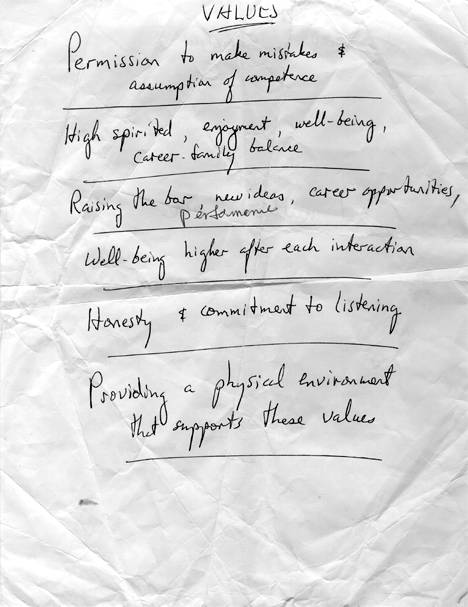 VALUES
Permission to make mistakes &
assumption of competence
High spirited, enjoyment, well-being,
career-family balance
Raising the bar, new ideas, career opportunities,
Well-being higher after each interaction
Honesty & commitment to listening
Providing a physical environment
that supports these values